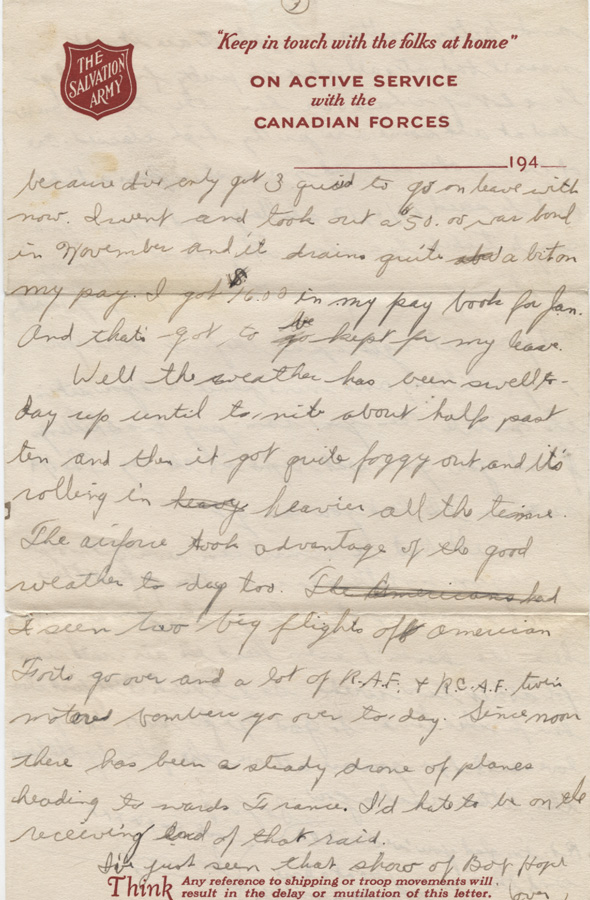 "Keep in touch with the folks at home"
THE SALVATION ARMY
ON ACTIVE SERVICE
with the
CANADIAN FORCES
194
because I've only got 3 quid to go on leave with
now. I went and took out a $50.00 war bond
in November and it drains quite a bit on
my pay. I got 16.00 in my pay book for Jan.
And that's got to be kept for my leave.
Well the weather has been swell to-
day up until to-nite about half past
ten and then it got quite foggy out and it's
rolling in heavy heavier all the time.
The airforce took advantage of the good
weather to day too. The Americans had
I seen two big flights off American
Forts go over and a lot of R.A.F. & R.C.A.F. twin
motored bombers go over to-day. Since noon
there has been a steady drone of planes
heading to wards France. I'd hate to be on the
receiving end of that raid.
I've just seen that show of Bob Hope
Think Any reference to shipping or troop movements will
result in the delay or mutilation of this letter.
(over)